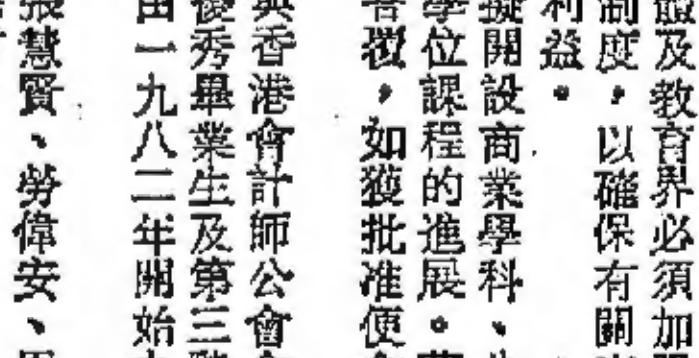 體及教育界必須加
制度，以確保有關
利益。
擬開設商業學科、
學位課程的進展。
答覆，如獲批准便
與香港會計師公會
優秀畢業生及第三
由一九八二年開始
張慧賢、勞偉安、